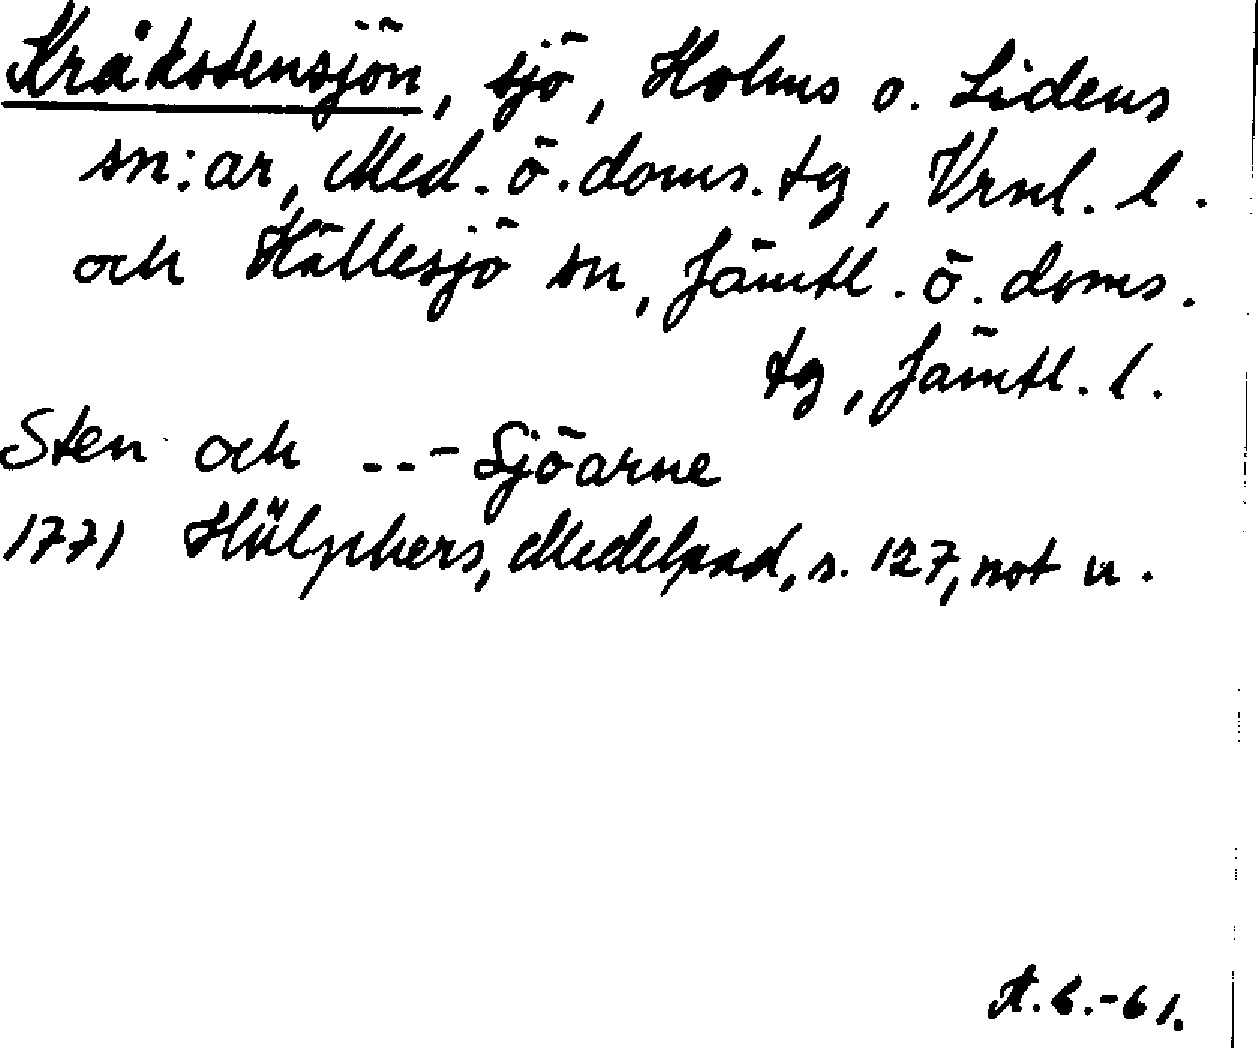 Kråkstensjön, sjö, Holms o. Lidens
sn:ar, Med. ö. doms. tg, Vrnl. l.
och Hällesjö sn, Jämtl. ö. doms.
tg, Jämtl. l.
Sten och --- Sjöarne
1771 Hülphers, Medelpad, s. 127, not u.
A.b.-61.